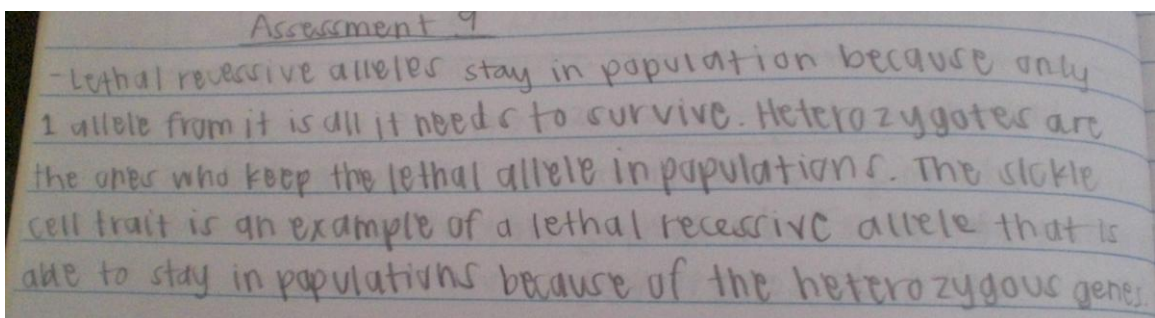 Assessment 9
-Lethal recessive alleles stay in population because only
1 allele from it is all it needs to survive. Heterozygotes are
the ones who keep the lethal allele in populations. The sickle
cell trait is an example of a lethal recessive allele that is
able to stay in populations because of the heterozygous genes.